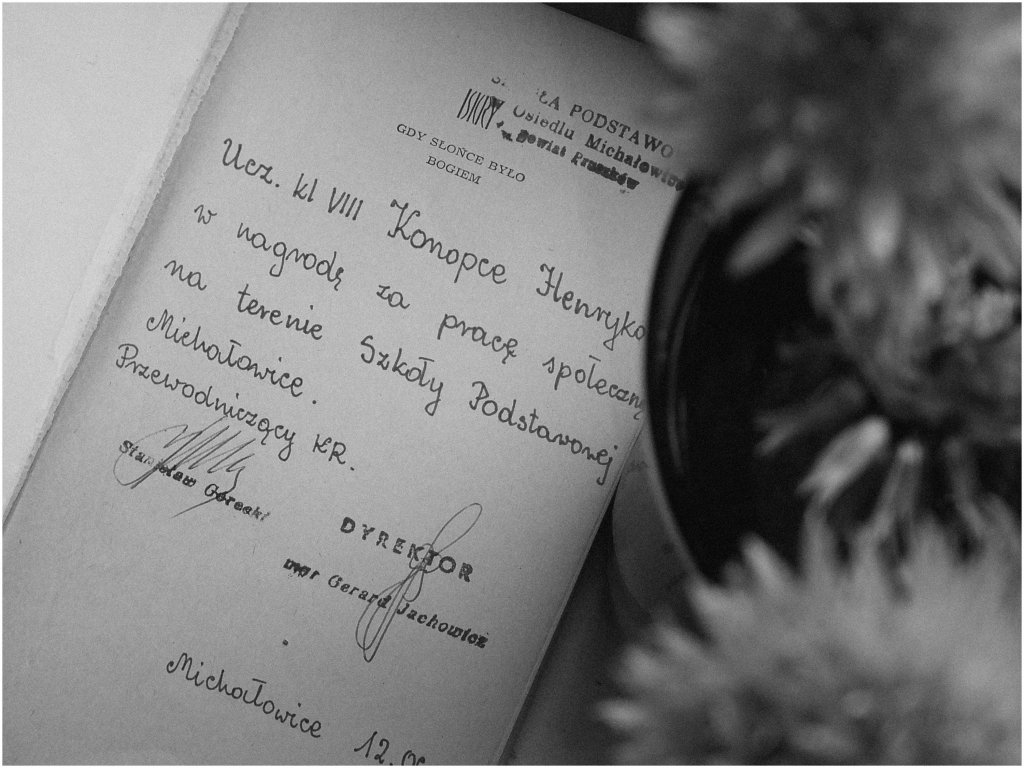 PODSTAWO
w Osiedlu Michałowice
Powiat Pruszków
ISKRY
GDY SŁOŃCE BYŁO
BOGIEM
Ucz. kl VIII Konopce Henryko
w nagrodę za pracę społeczną
na terenie Szkoły Podstawowej
Michałowice.
Przewodniczący KR.
Stanisław Górecki
DYREKTOR
mgr Gerard Jachowicz
Michałowice 12.